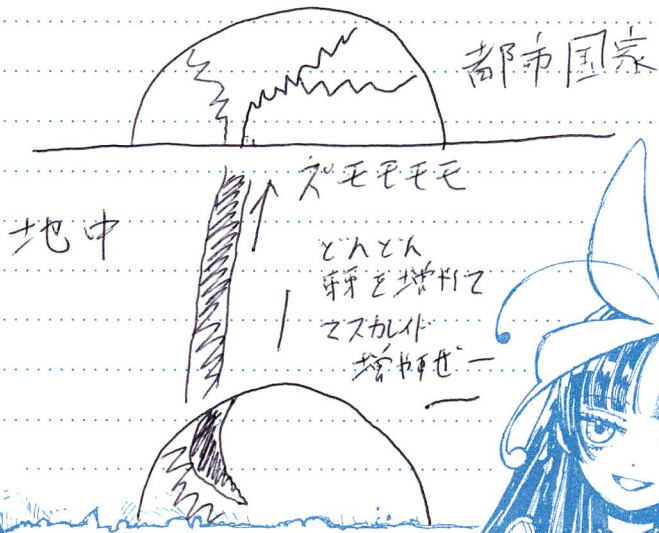 都市国家
ズモモモモ
地中
どんどん
芽を増やして
マスカレイド
増やすぜー